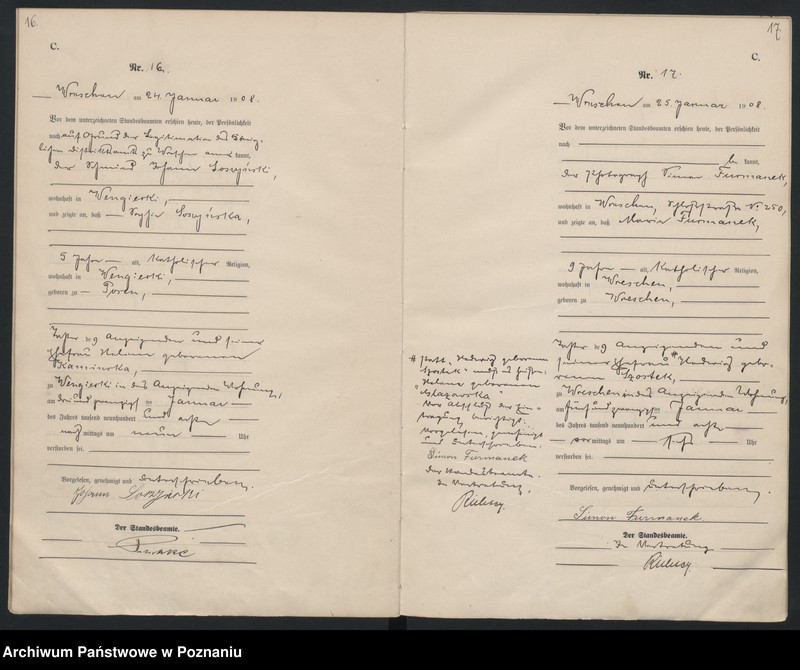 16.
C.
Nr. 16.
Wreschen am 24 Januar 1908.
Vor dem unterzeichneten Standesbeamten erschien heute, der Persönlichkeit
nach auf Grund der Legitimation des König-
lichen Distriktsamts zu Wreschen anerkannt,
der Schmied Johann
wohnhaft in Wengierki,
und zeigte an, daß Sophie
5 Jahre alt, Katholischer Religion,
wohnhaft in Wengierki,
geboren zu Posen,
Tochter des Anzeigenden und seiner
Ehefrau Helena geborenen
Kaminska,
zu Wengierki in des Anzeigenden Wohnung,
am drei und zwanzigsten Januar
des Jahres tausend neunhundert und acht
nachmittags um neun Uhr
verstorben sei.
Vorgelesen, genehmigt und unterschrieben.
Johann
Der Standesbeamte.
17.
C.
Nr. 17.
Wreschen am 25. Januar 1908.
Vor dem unterzeichneten Standesbeamten erschien heute, der Persönlichkeit
nach
be kannt,
der Photograph Simon Furmanek,
wohnhaft in Wreschen, Schloßstraße Nr. 250,
und zeigte an, daß Maria Furmanek,
9 Jahre alt, Katholischer Religion,
wohnhaft in Wreschen,
geboren zu Wreschen,
Tochter des Anzeigenden und
seiner Ehefrau # Hedwig gebo-
renen Szostek,
zu Wreschen in des Anzeigenden Wohnung,
am fünf und zwanzigsten Januar
des Jahres tausend neunhundert und acht
vormittags um Uhr
verstorben sei.
Vorgelesen, genehmigt und unterschrieben.
Simon Furmanek
Der Standesbeamte.
In Vertretung
# statt "Hedwig geborenen
Szostek" muß es heißen:
"Helena geborenen
Mazowska"
Vor Abschluß der Ein-
tragung berichtigt.
Vorgelesen, genehmigt
und unterschrieben.
Simon Furmanek
Der Standesbeamte.
In Vertretung.
Archiwum Państwowe w Poznaniu